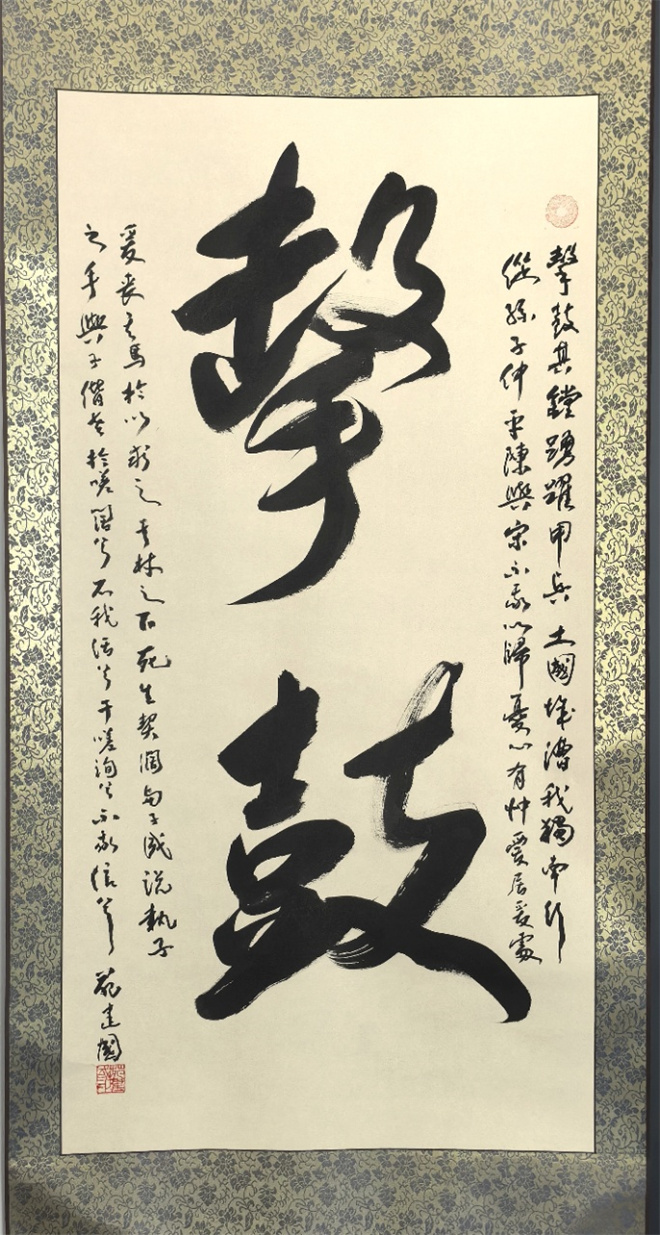 擊鼓其鏜踴躍甲兵土國城漕我獨南行
從孫子仲平陳與宋不我以歸憂心有忡爰居爰處
擊鼓
爰喪其馬於以求之于林之下死生契闊与子成説執子
之手與子偕老於嗟闊兮不我活兮于嗟洵兮不我信兮 建國